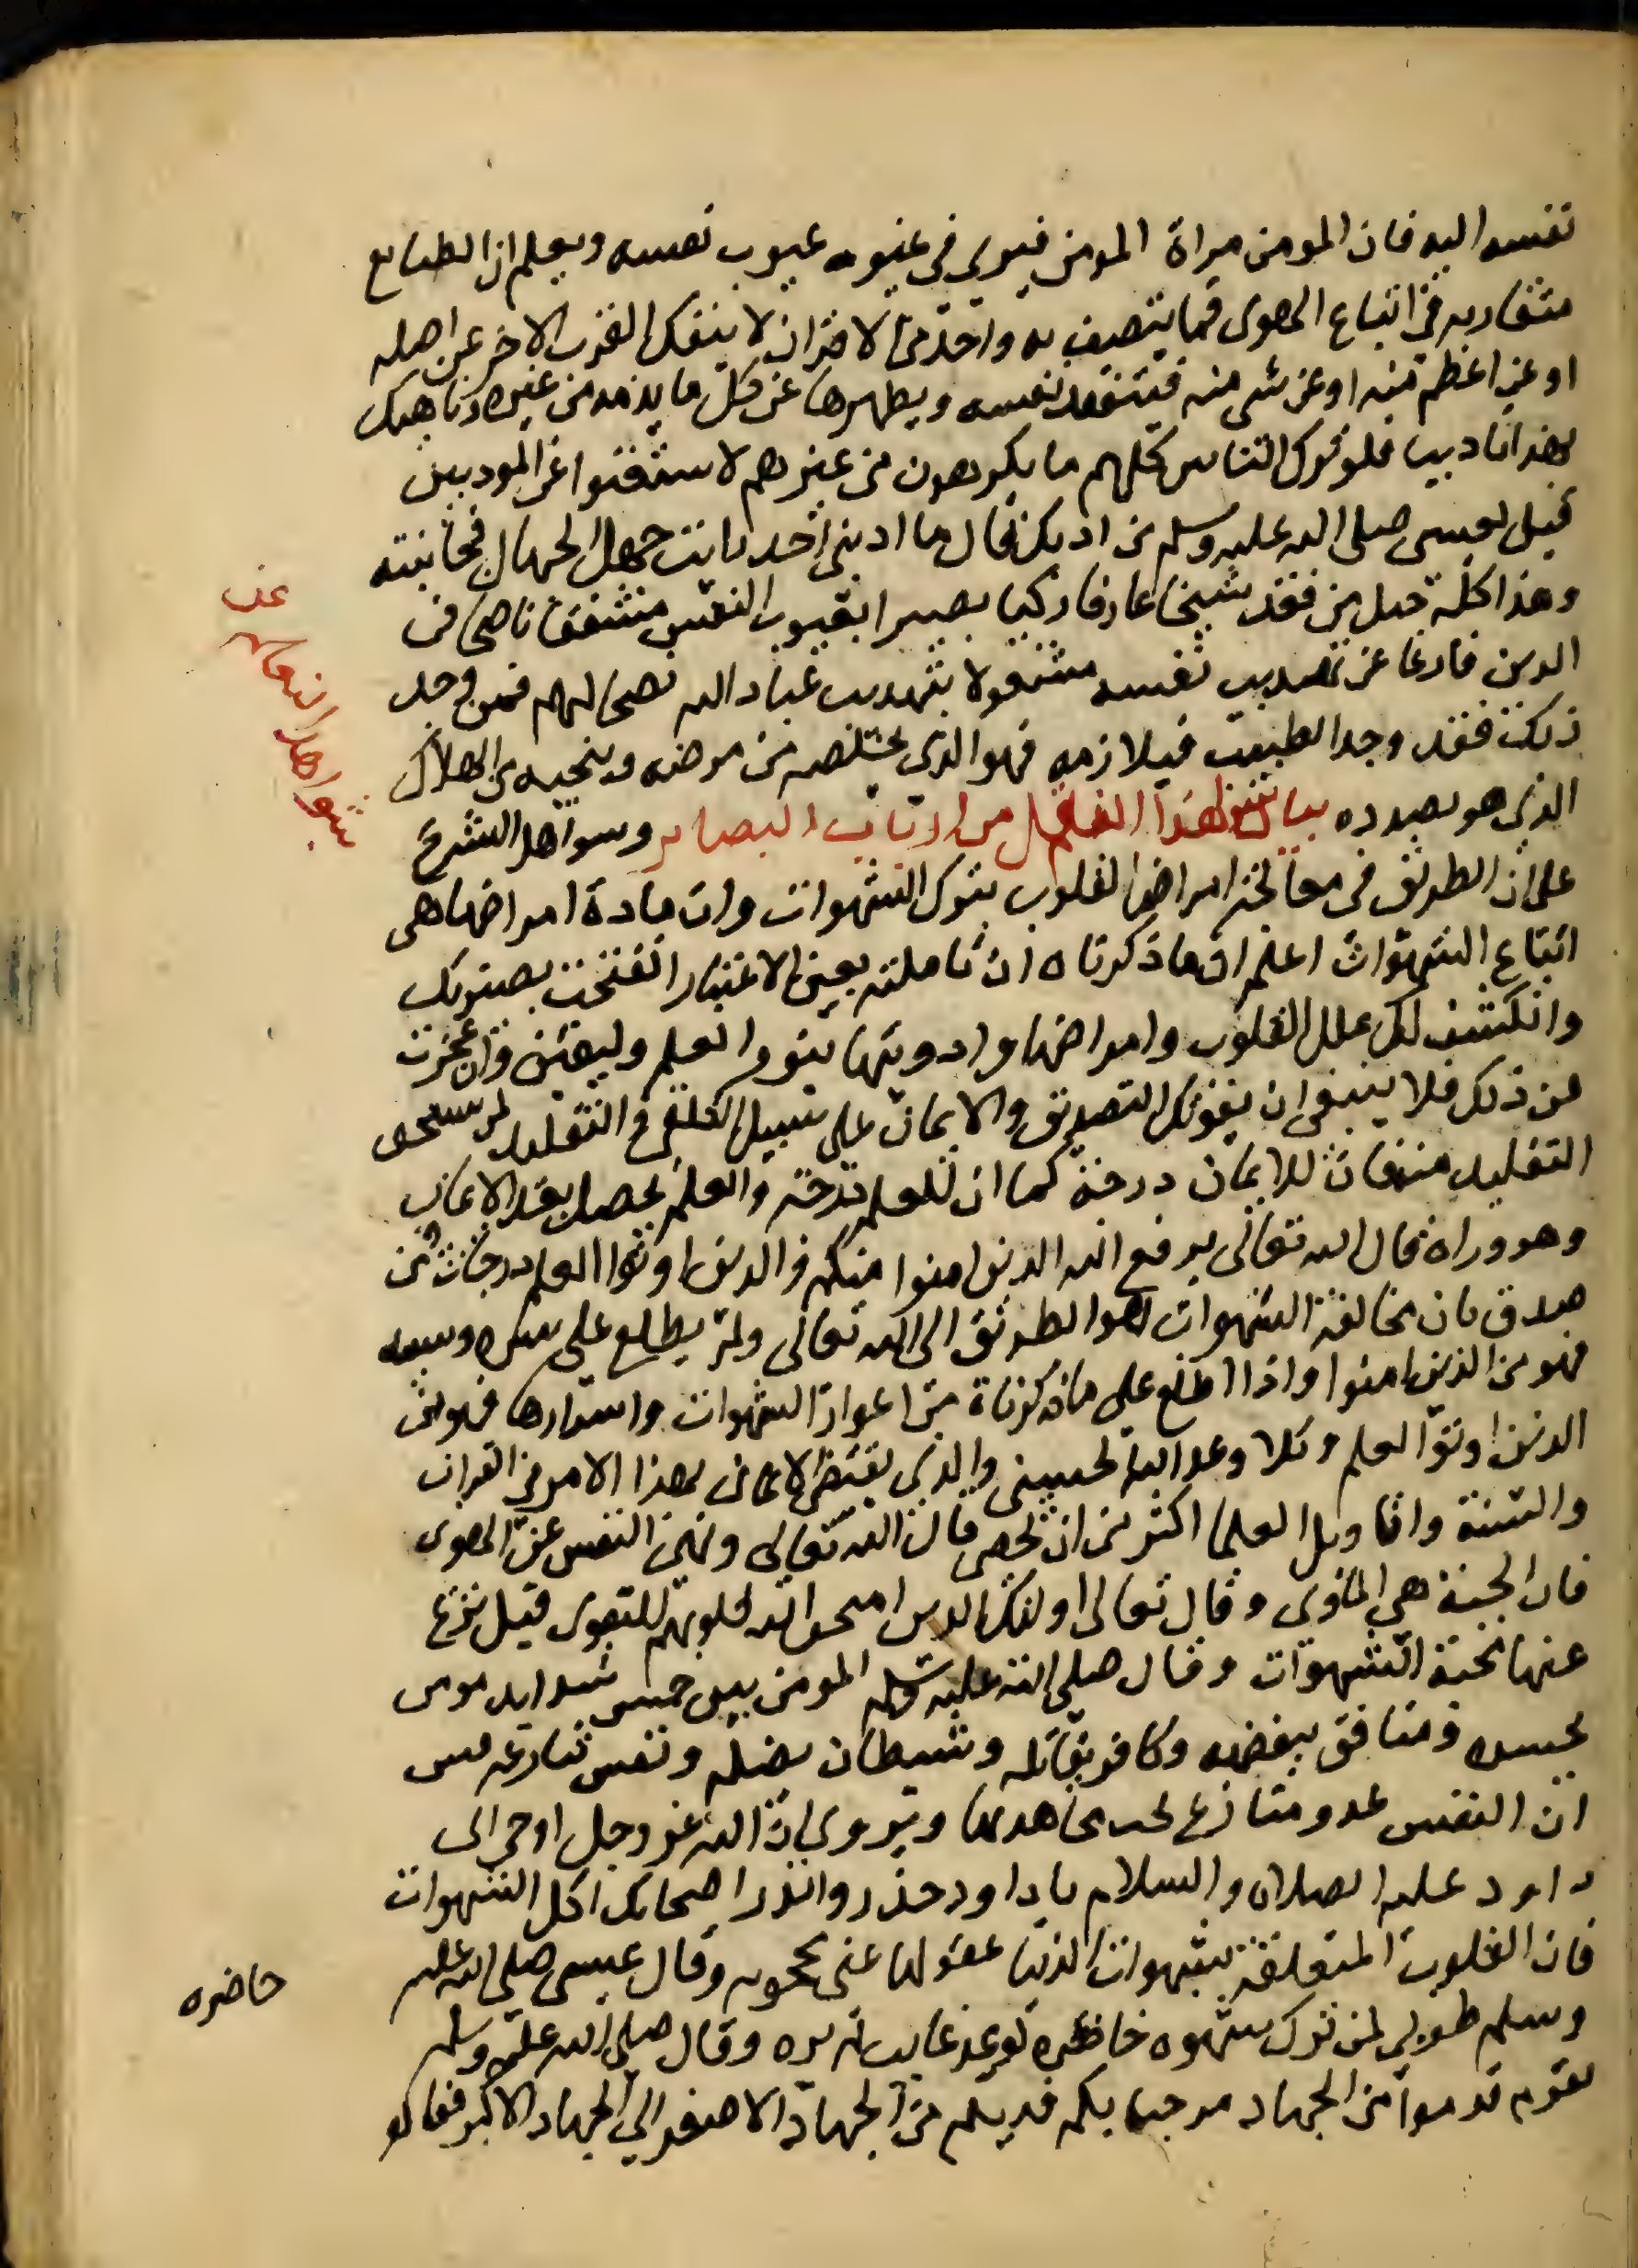 نفسه اليه فان المومن مراة المومن فيرى في غيره عيوب نفسه ويعلم ان الطبايع
متقاربة في اتباع الهوى فما يتصف به واحد من الاقران لا ينفك القرن الاخر عن اصله
او عن اعظم منه او عن شي منه فيتفقد نفسه ويطهرها عن كل ما يذمه من غيره وناهيك
بهذا تاديبا فلو ترك الناس كلهم ما يكرهون من غيرهم لاستغنوا عن المودبين
قيل لعيسى صلى الله عليه وسلم من ادبك فقال ما ادبني احد رايت جهل الجهال فجانبته
وهذا كله حيل من فقد شيخا عارفا زكيا بصيرا بعيوب النفس مشفقا ناصحا في
الدين فارغا عن تهذيب نفسه مشغولا بتهذيب عباد الله نصحا لهم فمن وجد
ذلك فقد وجد الطبيب فيلازمه فهو الذي يخلصه من مرضه وينجيه من الهلاك
الذي هو بصدده بيان من ارباب البصاير وسواهد الشرع
على ان الطريق في معالجة امراض القلوب بترك الشهوات وان مادة امراضها هي
اتباع الشهوات اعلم ان ما ذكرناه ان تاملته بعين الاعتبار انفتحت بصيرتك
وانكشف لك علل القلوب وامراضها وادويتها بنور العلم وليقين وان عجزت
عن ذلك فلا ينبغي ان يفوتك التصديق والايمان على سبيل التلقي والتقليد لمن يستحق
التقليد منهفان للايمان درجة كما ان للعلم درجة والعلم يحصل بعد الايمان
وهو وراه قال الله تعالى يرفع الله الذين امنوا منكم والذين اوتوا العلم درجات فمن
صدق بان مخالفة الشهوات هو الطريق الى الله تعالى ولم يطلع على سره وسببه
فهو من الذين امنوا واذا اطلع على ما ذكرناة من اعوان الشهوات واسرارها فهو من
الذين اوتوا العلم وكلا وعد الله الحسنى والذي يقتضي الايمان بهذا الامر في القران
والسنة واقاويل العلما اكثر من ان تحصى قال الله تعالى ونهى النفس عن الهوى
فان الجنة هي الماوى وقال تعالى اولئك الذين امتحن الله قلوبهم للتقوى قيل نزع
عنها محبة الشهوات وقال صلى الله عليه وسلم المومن بين خمس شدايد مومن
يحسده ومنافق يبغضه وكافر يقاتله وشيطان يضله ونفس تنازعه فبين
ان النفس عدو منازع يجب مجاهدتها ويروى ان الله عز وجل اوحى الى
داود عليه الصلاة والسلام يا داود حذر وانذر اصحابك اكل الشهوات
فان القلوب المتعلقة بشهوات الدنيا عقولها عني محجوبه وقال عيسى صلى الله عليه
وسلم طوبى لمن ترك شهوه حاضره لموعد غايب لم يره وقال صلى الله عليه وسلم
لقوم قدموا من الجهاد مرحبا بكم قدمتم من الجهاد الاصغر الى الجهاد الاكبر فقالو
حاضره